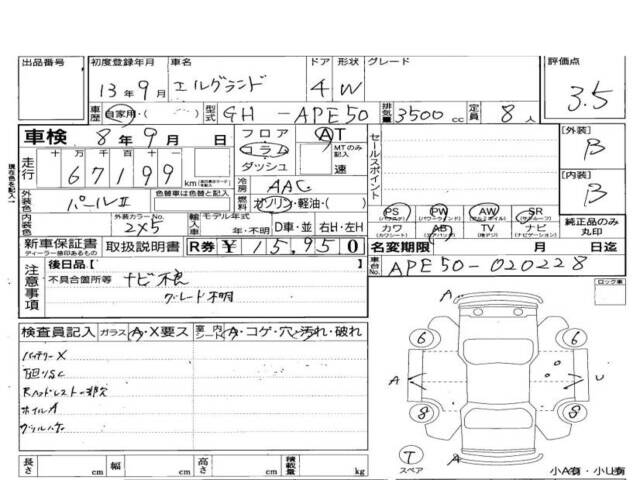 出品番号 初度登録年月 車名 ドア 形状 グレード 評価点
13年9月 エルグランド 4 W 3.5
車歴 自家用・( ) 型式 GH-APE50 排気量 3500cc 定員 8人
車検 8年9月 日 フロア AT セールスポイント [外装] B
コラム MTのみ記入
走行 十万千百十一 67199km ダッシュ 速
外装色 パールII 色替車は色替と記入 冷房 AAC [内装] B
燃料 ガソリン・軽油・( ) PS PW AW SR
内装色 外装カラーNo. 2X5 輸入車 モデル年式 年・不明 D車・並 右H・左H カワ AB TV ナビ 純正品のみ丸印
新車保証書 取扱説明書 R券 ¥15,950 名変期限 月 日迄
ディーラー捺印あるもの
車台No. APE50-020228
注意事項 後日品[
不具合箇所等 ナビ不良
グレード不明
ロック車
検査員記入 ガラス A・X要ス 室内シート A・コゲ・穴・汚れ・破れ
バッテリーX
ホイルA
A
6 6
A U
8 8
T A
スペア
小A有・小U有
長さ cm 幅 cm 高さ cm 積載量 kg
現在色を記入